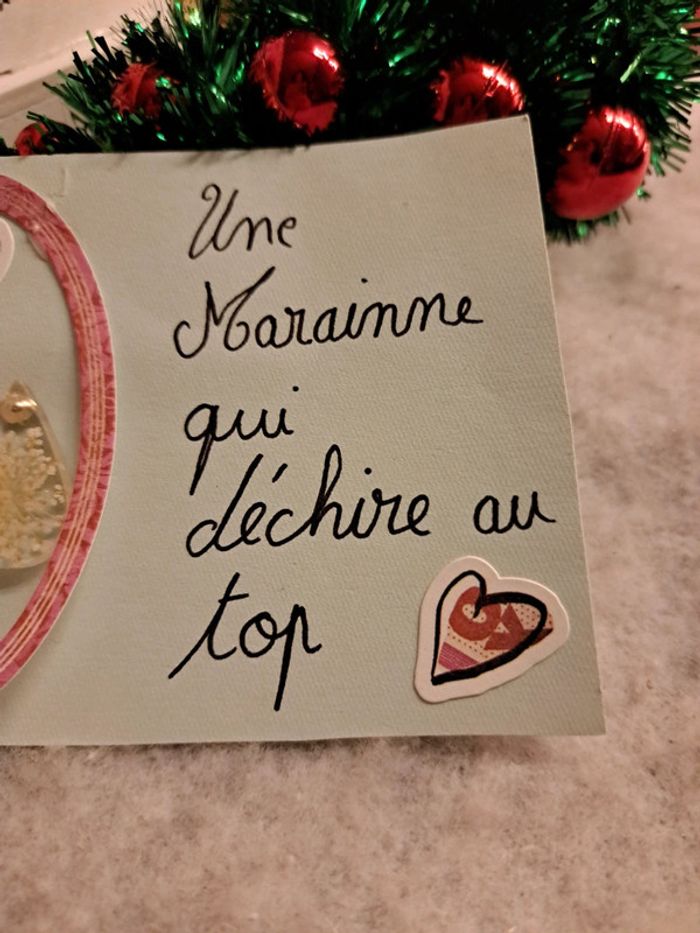 Une
Marainne
qui
déchire au
top